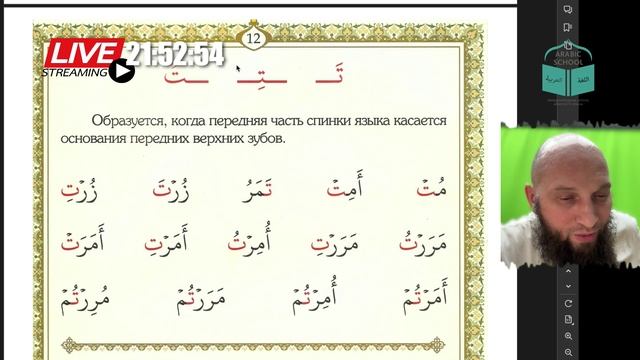 12
LIVE 21:52:54
STREAMING
ARABIC
SCHOOL
اللغة العربية
تَـ ـتِـ ـتْ
Образуется, когда передняя часть спинки языка касается
основания передних верхних зубов.
مُتْ أَمِتْ تَمَرُ زُرْتَ زُرْتِ
مَرَرْتُ مَرَرْتِ أُمِرْتُ أَمَرْتِ أَمَرَتْ
أَمَرْتُمْ أُمِرْتُمْ مَرَرْتُمْ مُرِرْتُمْ